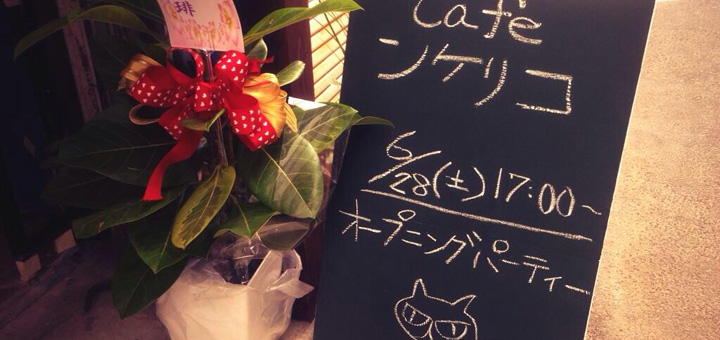 琲
Café
シケリコ
6/28(土)17:00~
オープニングパーティー